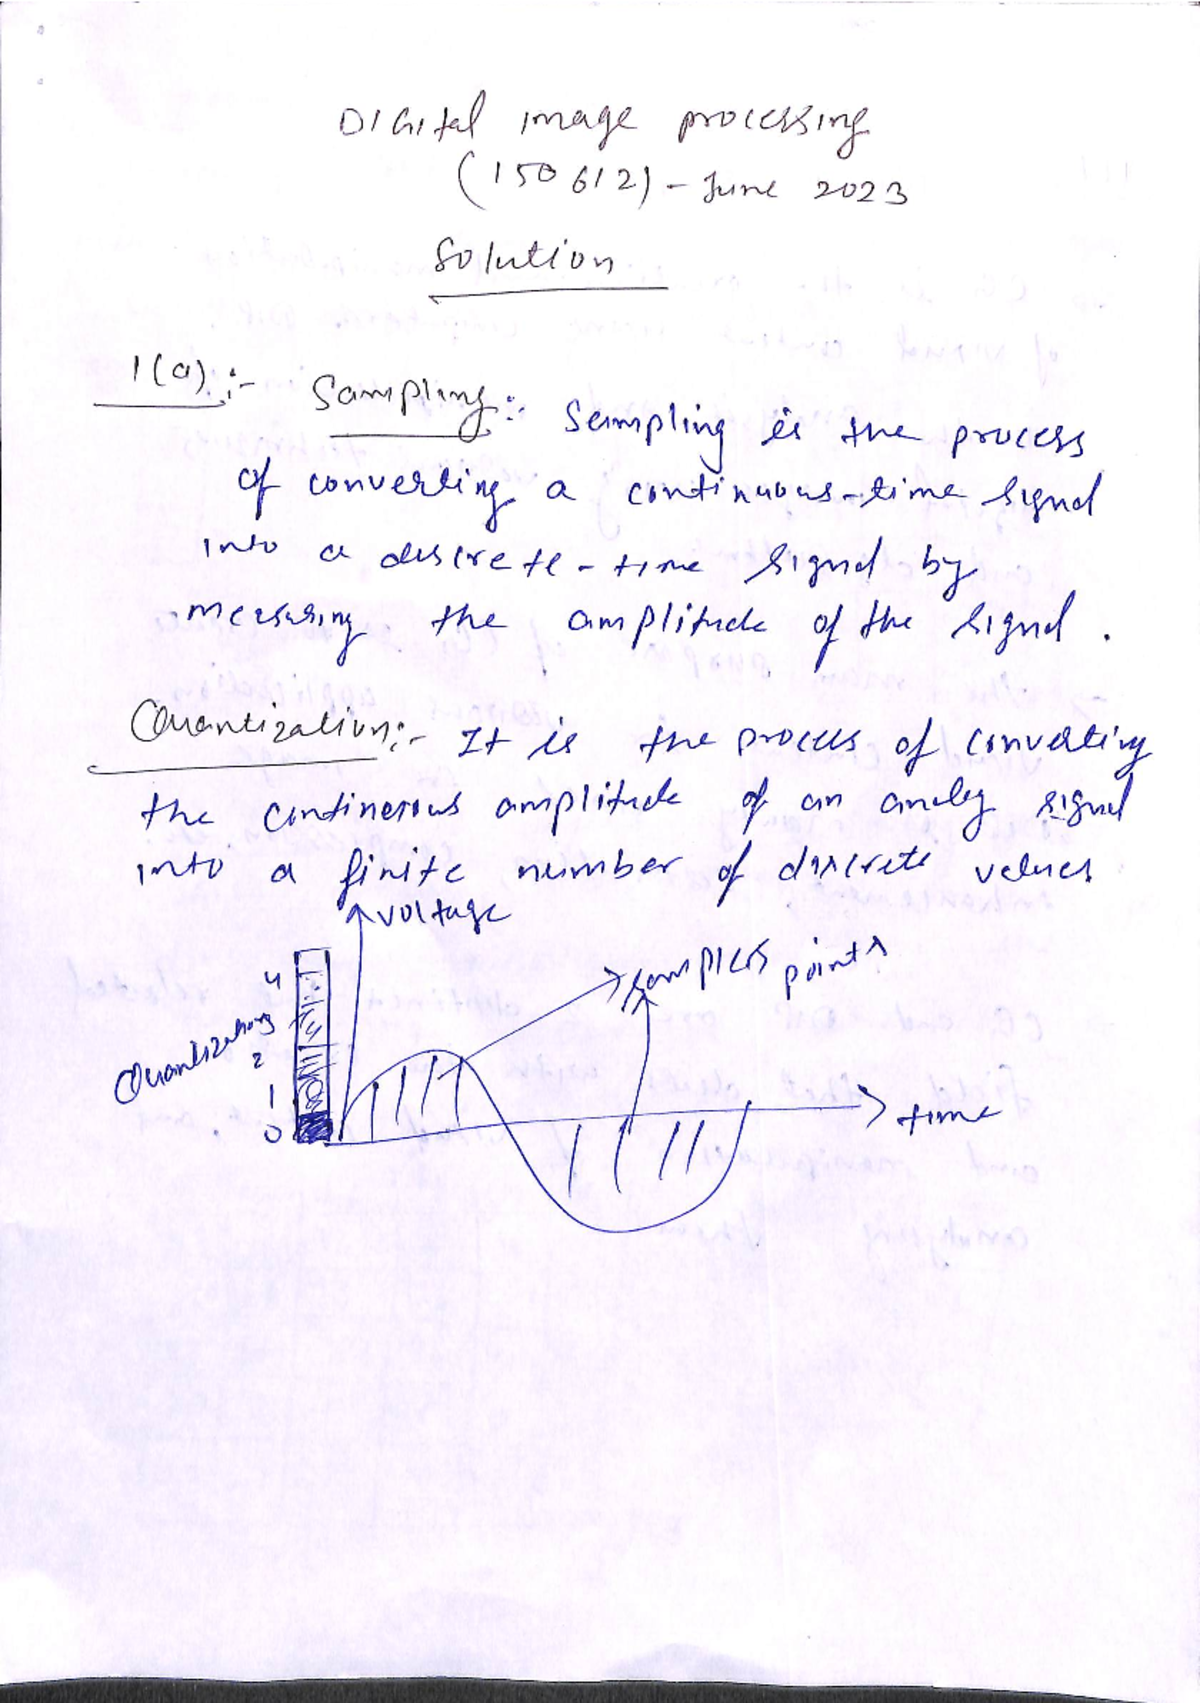 Digital image processing
(150612) - June 2023
Solution
1(a) :- Sampling :- Sampling is the process
of converting a continuous-time signal
into a discrete-time signal by
measuring the amplitude of the signal.
Quantization :- It is the process of converting
the continuous amplitude of an analog signal
into a finite number of discrete values
voltage
samples points
4
Quantization
2
1
0
time